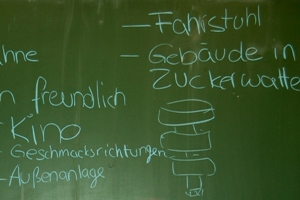 - Fahrstuhl
- Gebäude in
Zuckerwatte
freundlich
Kino
- Geschmacksrichtungen
- Außenanlage